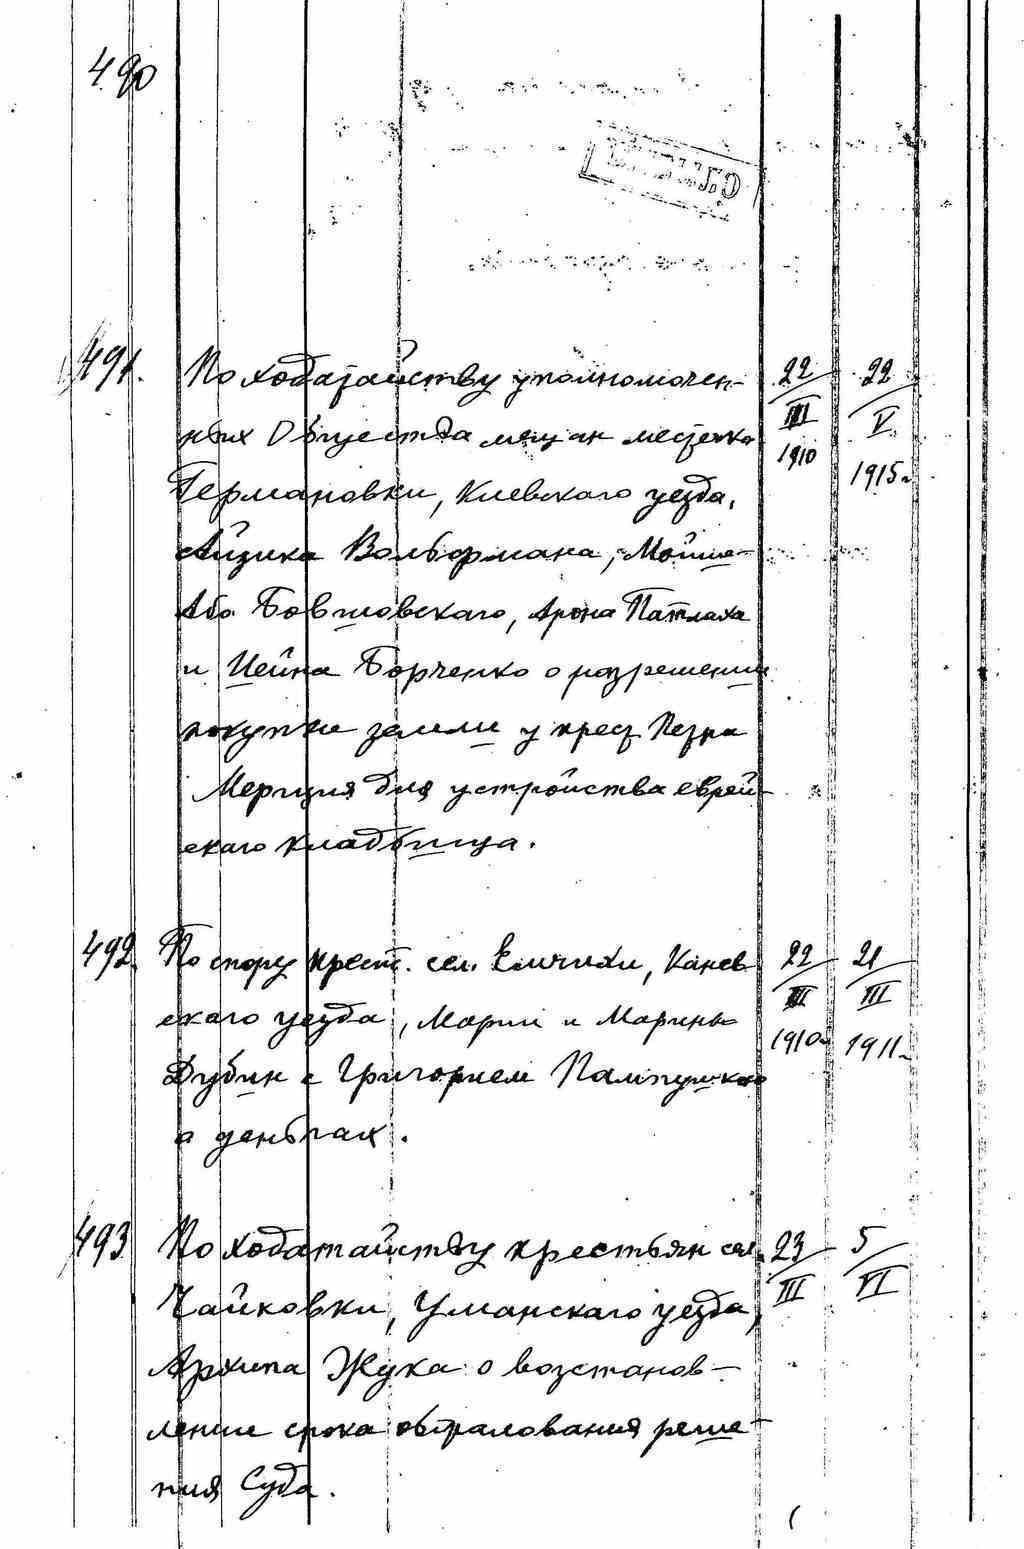 490
491. По ходатайству уполномочен-
ных Общества мещан местечка
Германовки, Киевскаго уезда,
Айзика Вольфмана, Мойше-
Або Бовшовскаго, Арона Патлаха
и Иейна Борченко о разрешении
покупки земли у крест. Петра
Мерция для устройства еврей-
скаго кладбища.
22/III 1910
22/V 1915г
492. По спору крест. сел. Емчихи, Канев-
скаго уезда, Марии и Марины
Дубин с Григорием Пампушкою
о деньгах.
22/III 1910г
21/III 1911г
493 По ходатайству крестьян сел.
Чайковки, Уманскаго уезда,
Архипа Жука о возстанов-
лении срока обжалования реше-
ния Суда.
23/III
5/VI